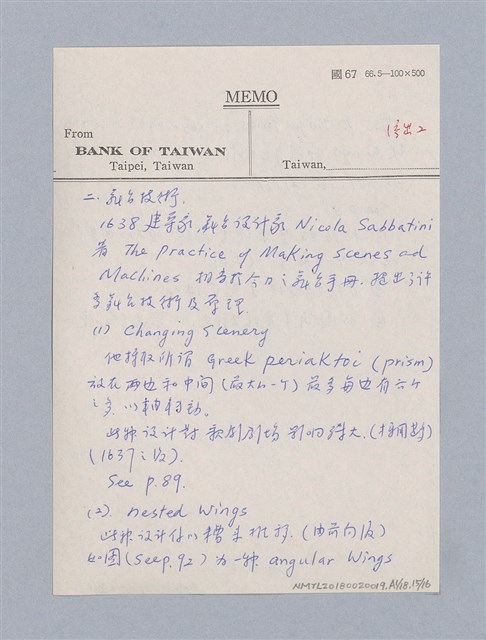 國67 66.5—100×500
MEMO
From
BANK OF TAIWAN
Taipei, Taiwan
Taiwan,
二. 舞台技術.
1638 建築家, 舞台设计家 Nicola Sabbatini
著 The Practice of Making Scenes and
Machines 相当於今日之舞台手册. 提出了许
多舞台技術及原理.
(1) Changing Scenery
他採取所谓 Greek periaktoi (prism)
放在两边和中间 (最大的一个) 最多每边有六个
之多. 以轴转动.
此种设计对歌剧剧场影响殊大.
(1637之後).
See p.89.
(2). nested wings
此种设计係以槽来推移. (由前向後)
如图 (See p.92) 为一种 angular Wings
NMTL20180020019.A1/18.15/16